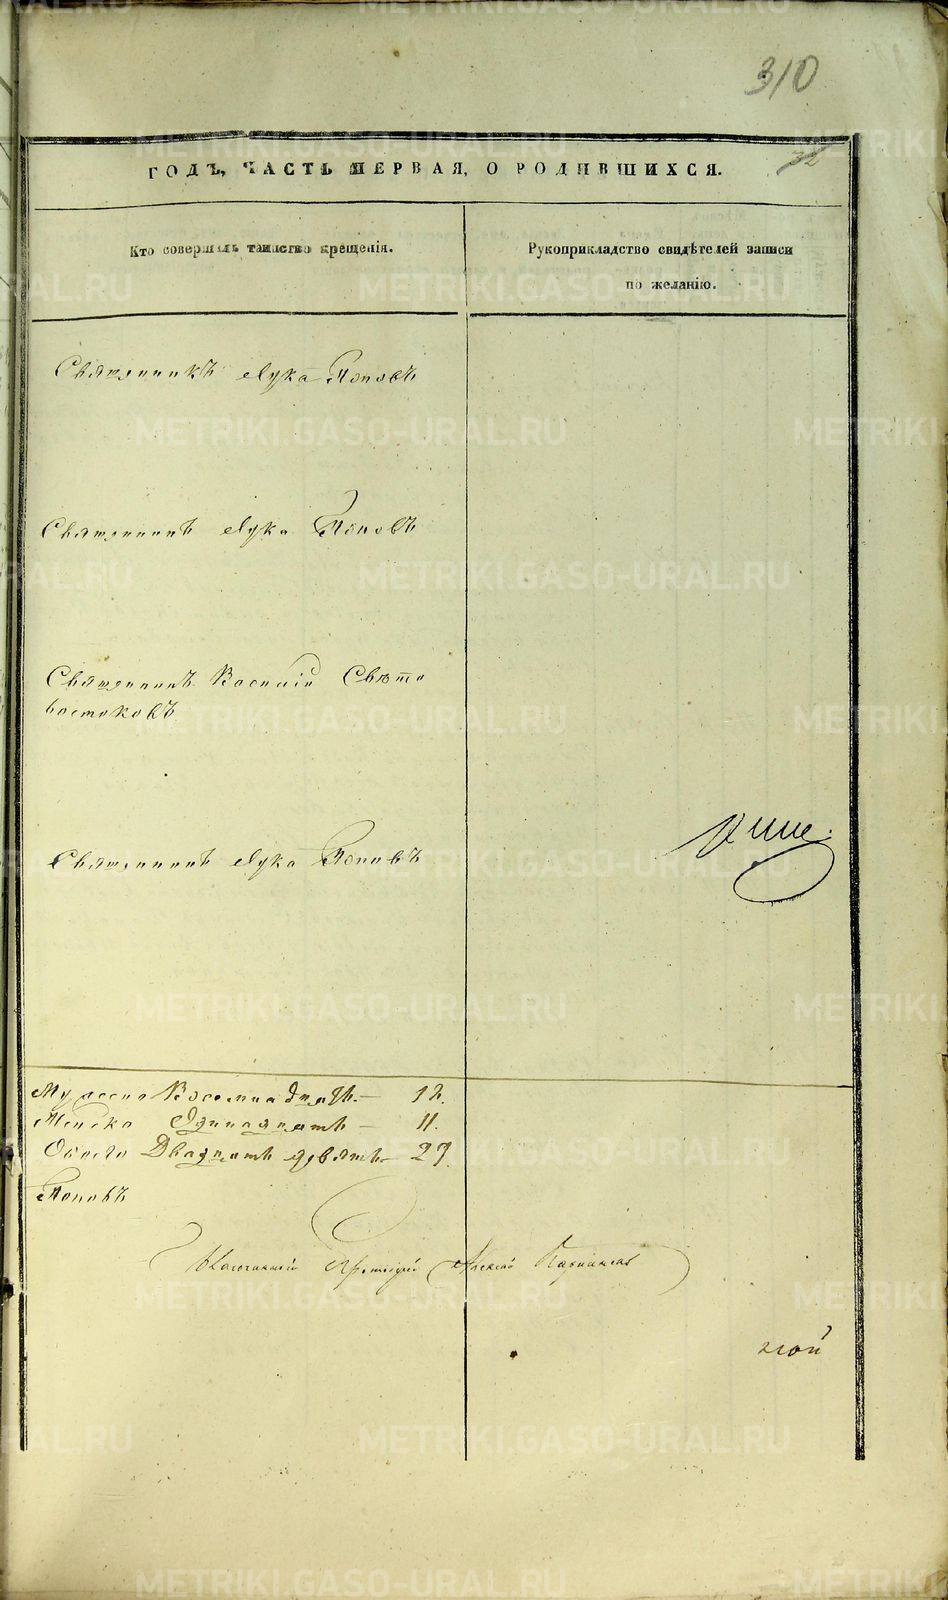 310
32
ГОДЪ, ЧАСТЬ ПЕРВАЯ, О РОДИВШИХСЯ.
Кто совершалъ таинство крещенія.
Рукоприкладство свидѣтелей записи
по желанію.
Священникъ Лука Поповъ
Священникъ Лука Поповъ
Священникъ Василій Свѣто
востоковъ
Священникъ Лука Поповъ
Мужеска
Женска Одинадцать — 11.
Обоего Двадцать девять — 29.
Поповъ
Алексій
METRIKI.GASO-URAL.RU